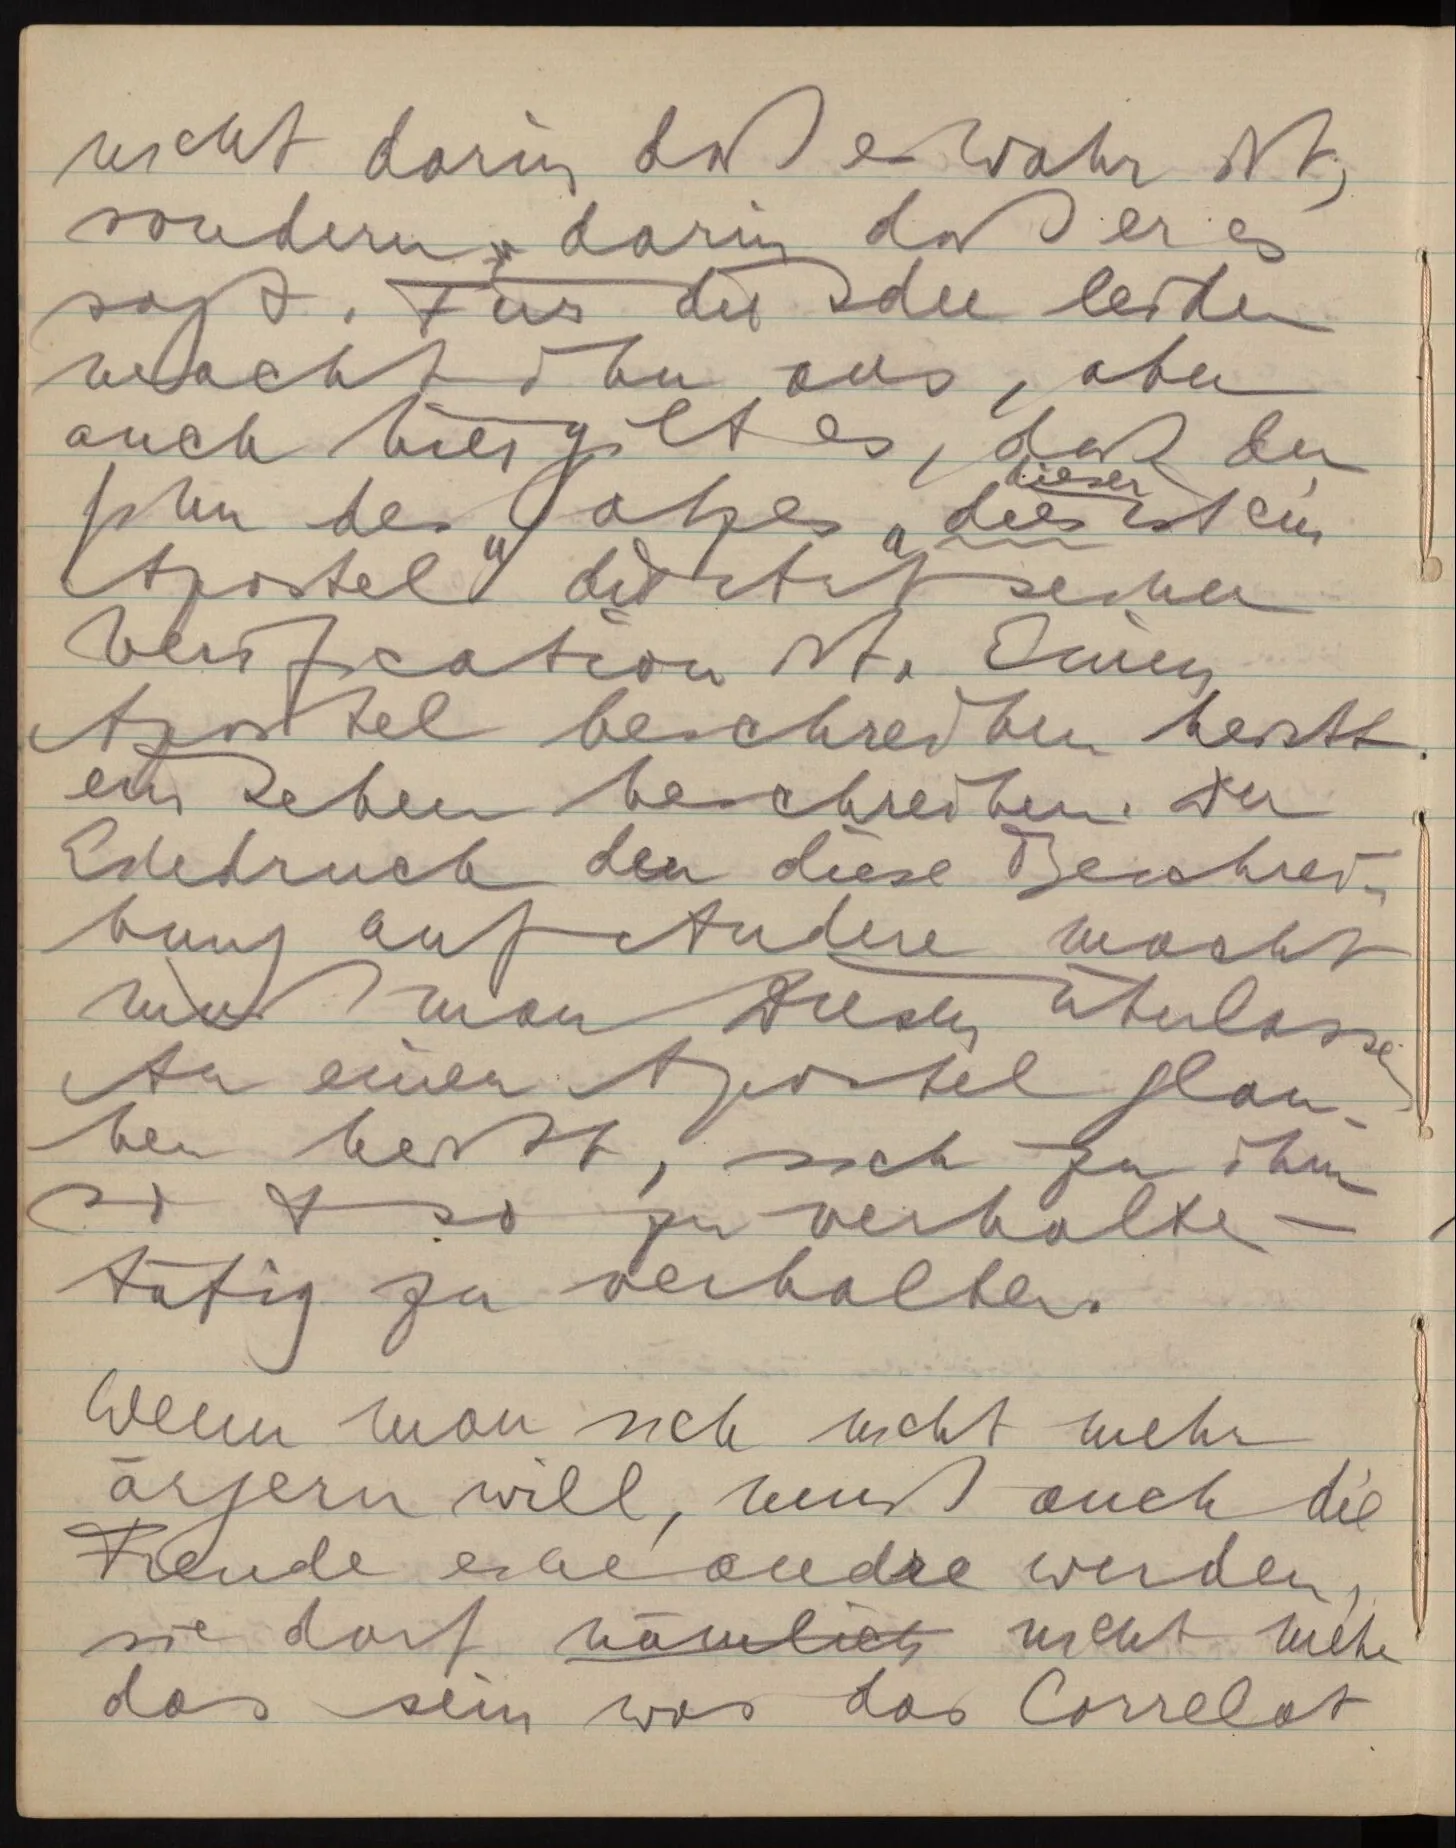 nicht darin daß es wahr ist,
sondern darin daß er es
sagt. Für die Idee leiden
macht ihn aus, aber
auch hier gilt es, daß der
Sinn des Satzes „dieser ist ein
Apostel“ die Art seiner
Verification ist. Einen
Apostel beschreiben heißt
ein Leben beschreiben. Der
Eindruck den diese Beschrei-
bung auf Andere macht
muß man Diesen überlassen
An einen Apostel glau-
ben heißt, sich zu ihm
so & so zu verhalten –
tätig zu verhalten.
Wenn man sich nicht mehr
ärgern will, muß auch die
Freude eine andre werden,
sie darf nämlich nicht mehr
das sein was das Correlat